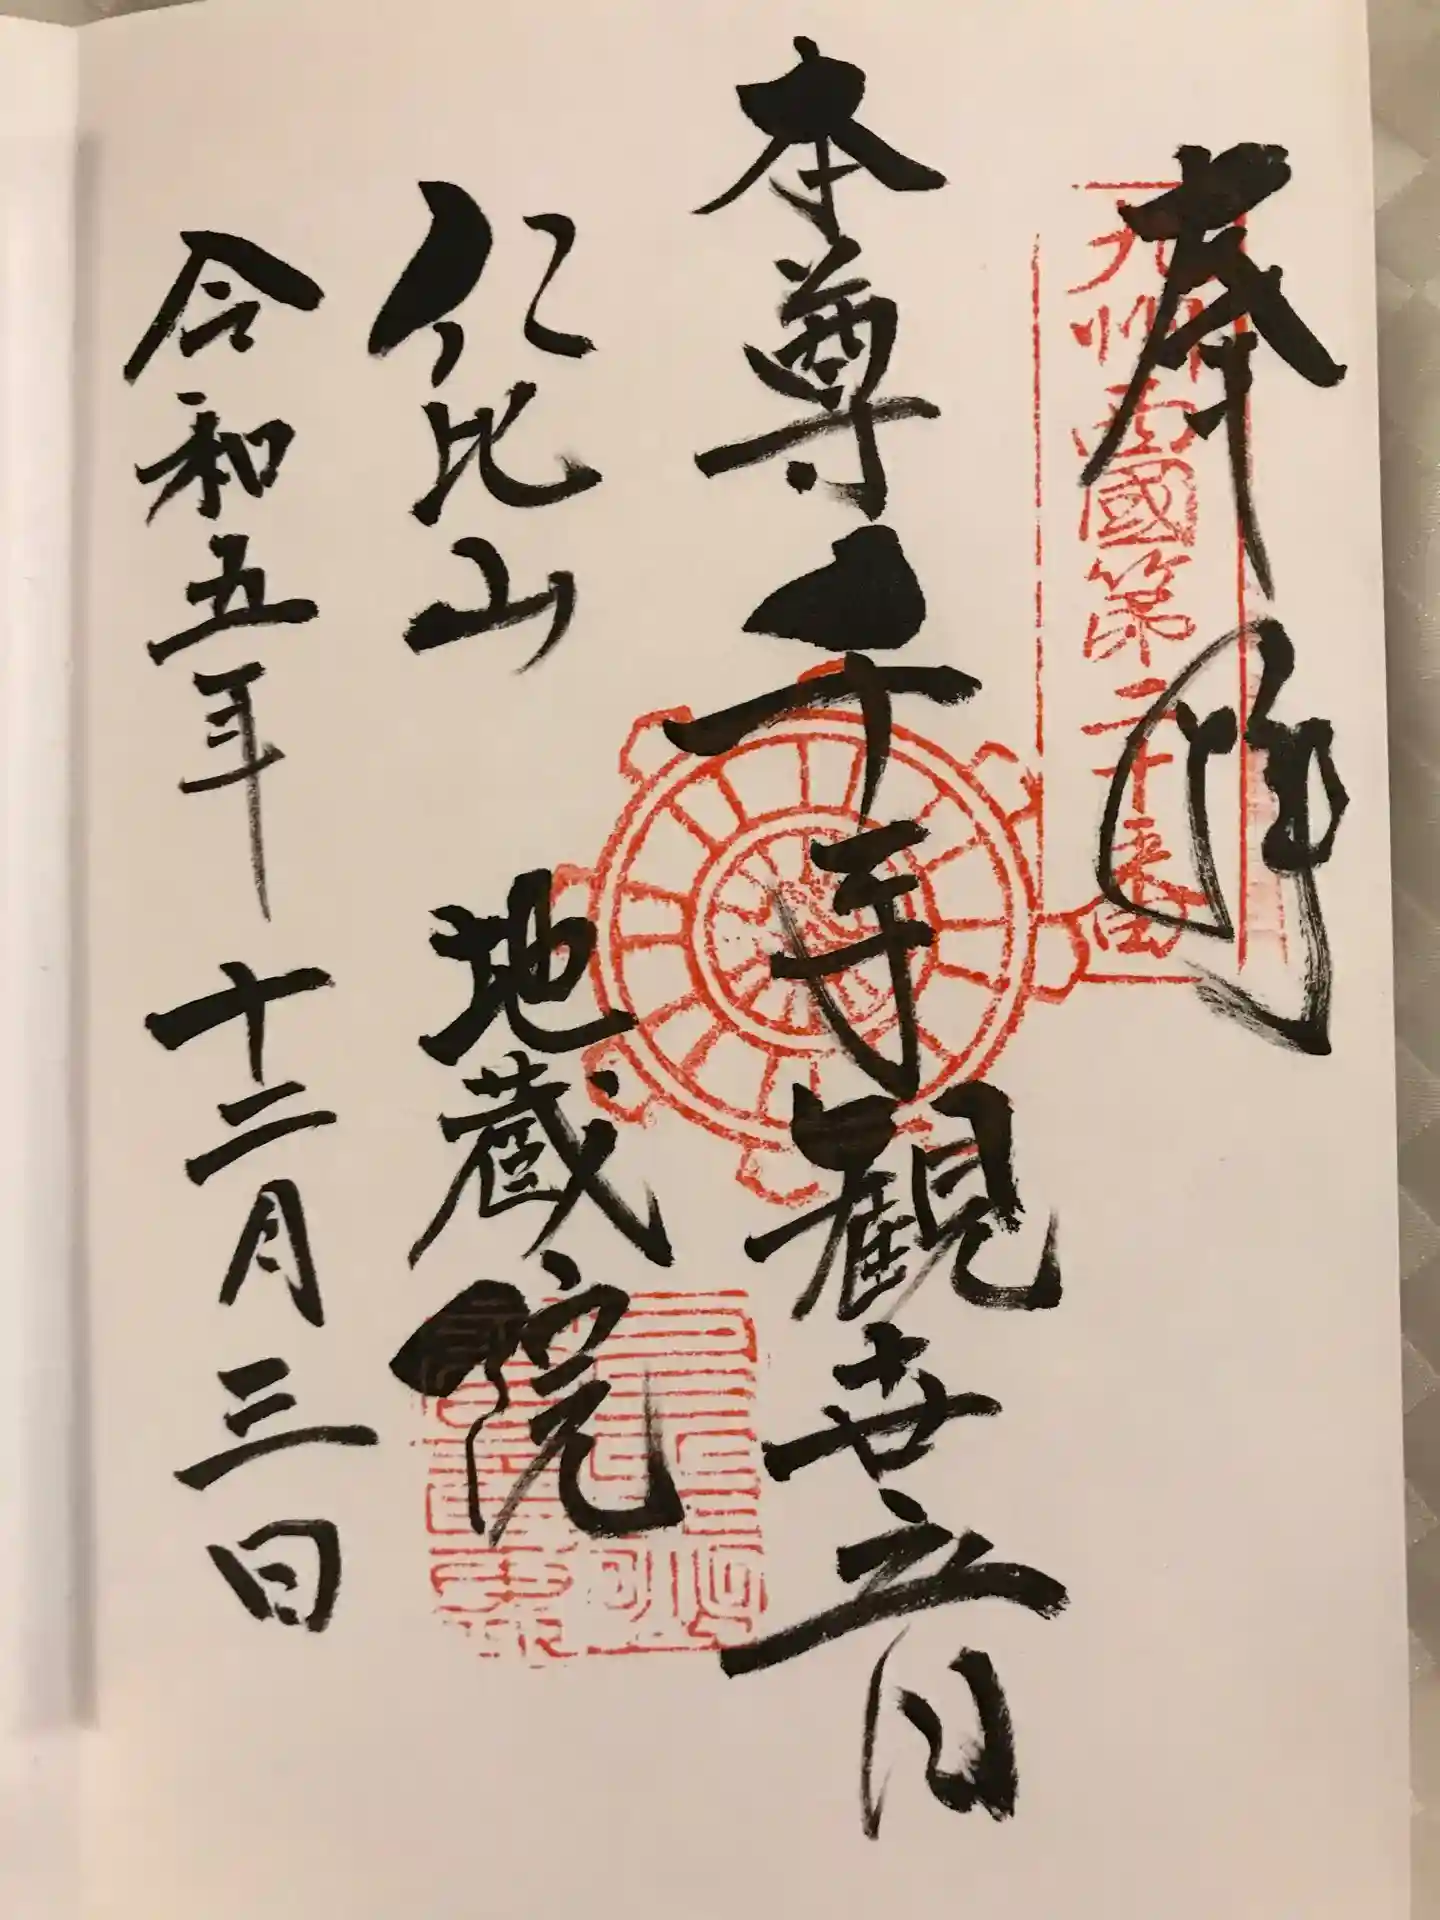 奉拝
九州西國第二十番
本尊千手観世音
仁比山 地蔵院
令和五年 十二月 三日